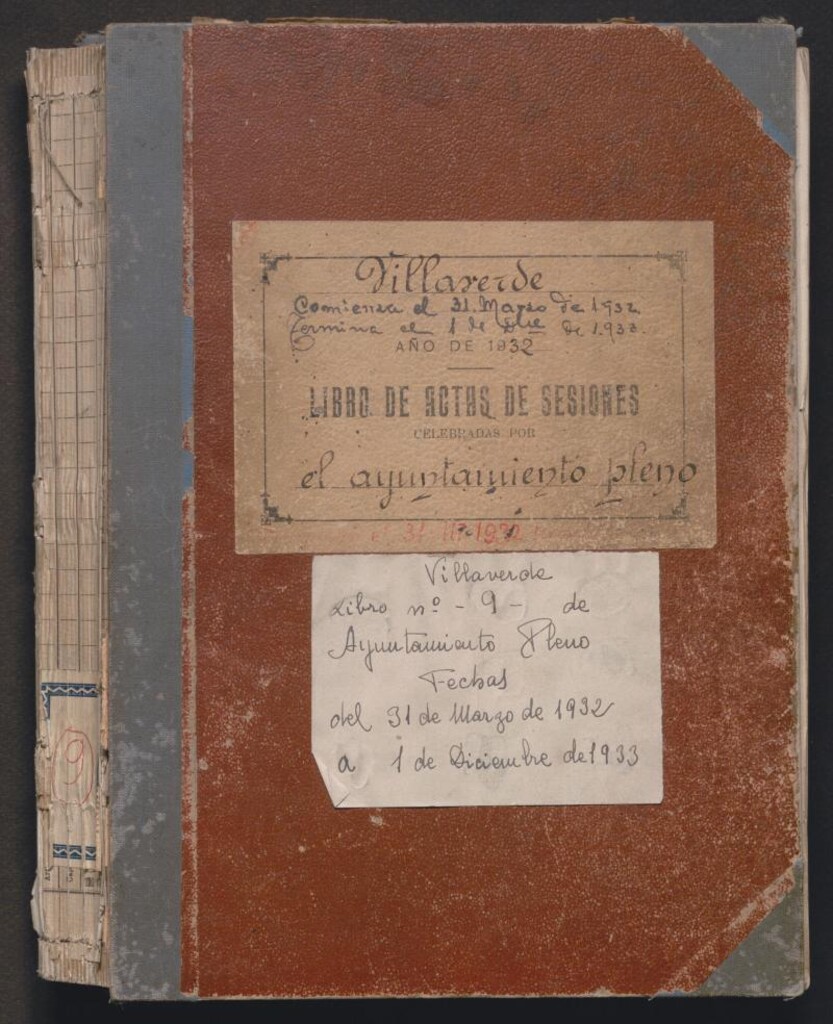 Villaverde
Comienza el 31 Marzo de 1932
Termina el 1 de Dbre de 1.933.
AÑO DE 1932
LIBRO DE ACTAS DE SESIONES
CELEBRADAS POR
el ayuntamiento pleno
el 31-III-1932
Villaverde
Libro nº - 9 - de
Ayuntamiento Pleno
Fechas
del 31 de Marzo de 1932
a 1 de Diciembre de 1933
9